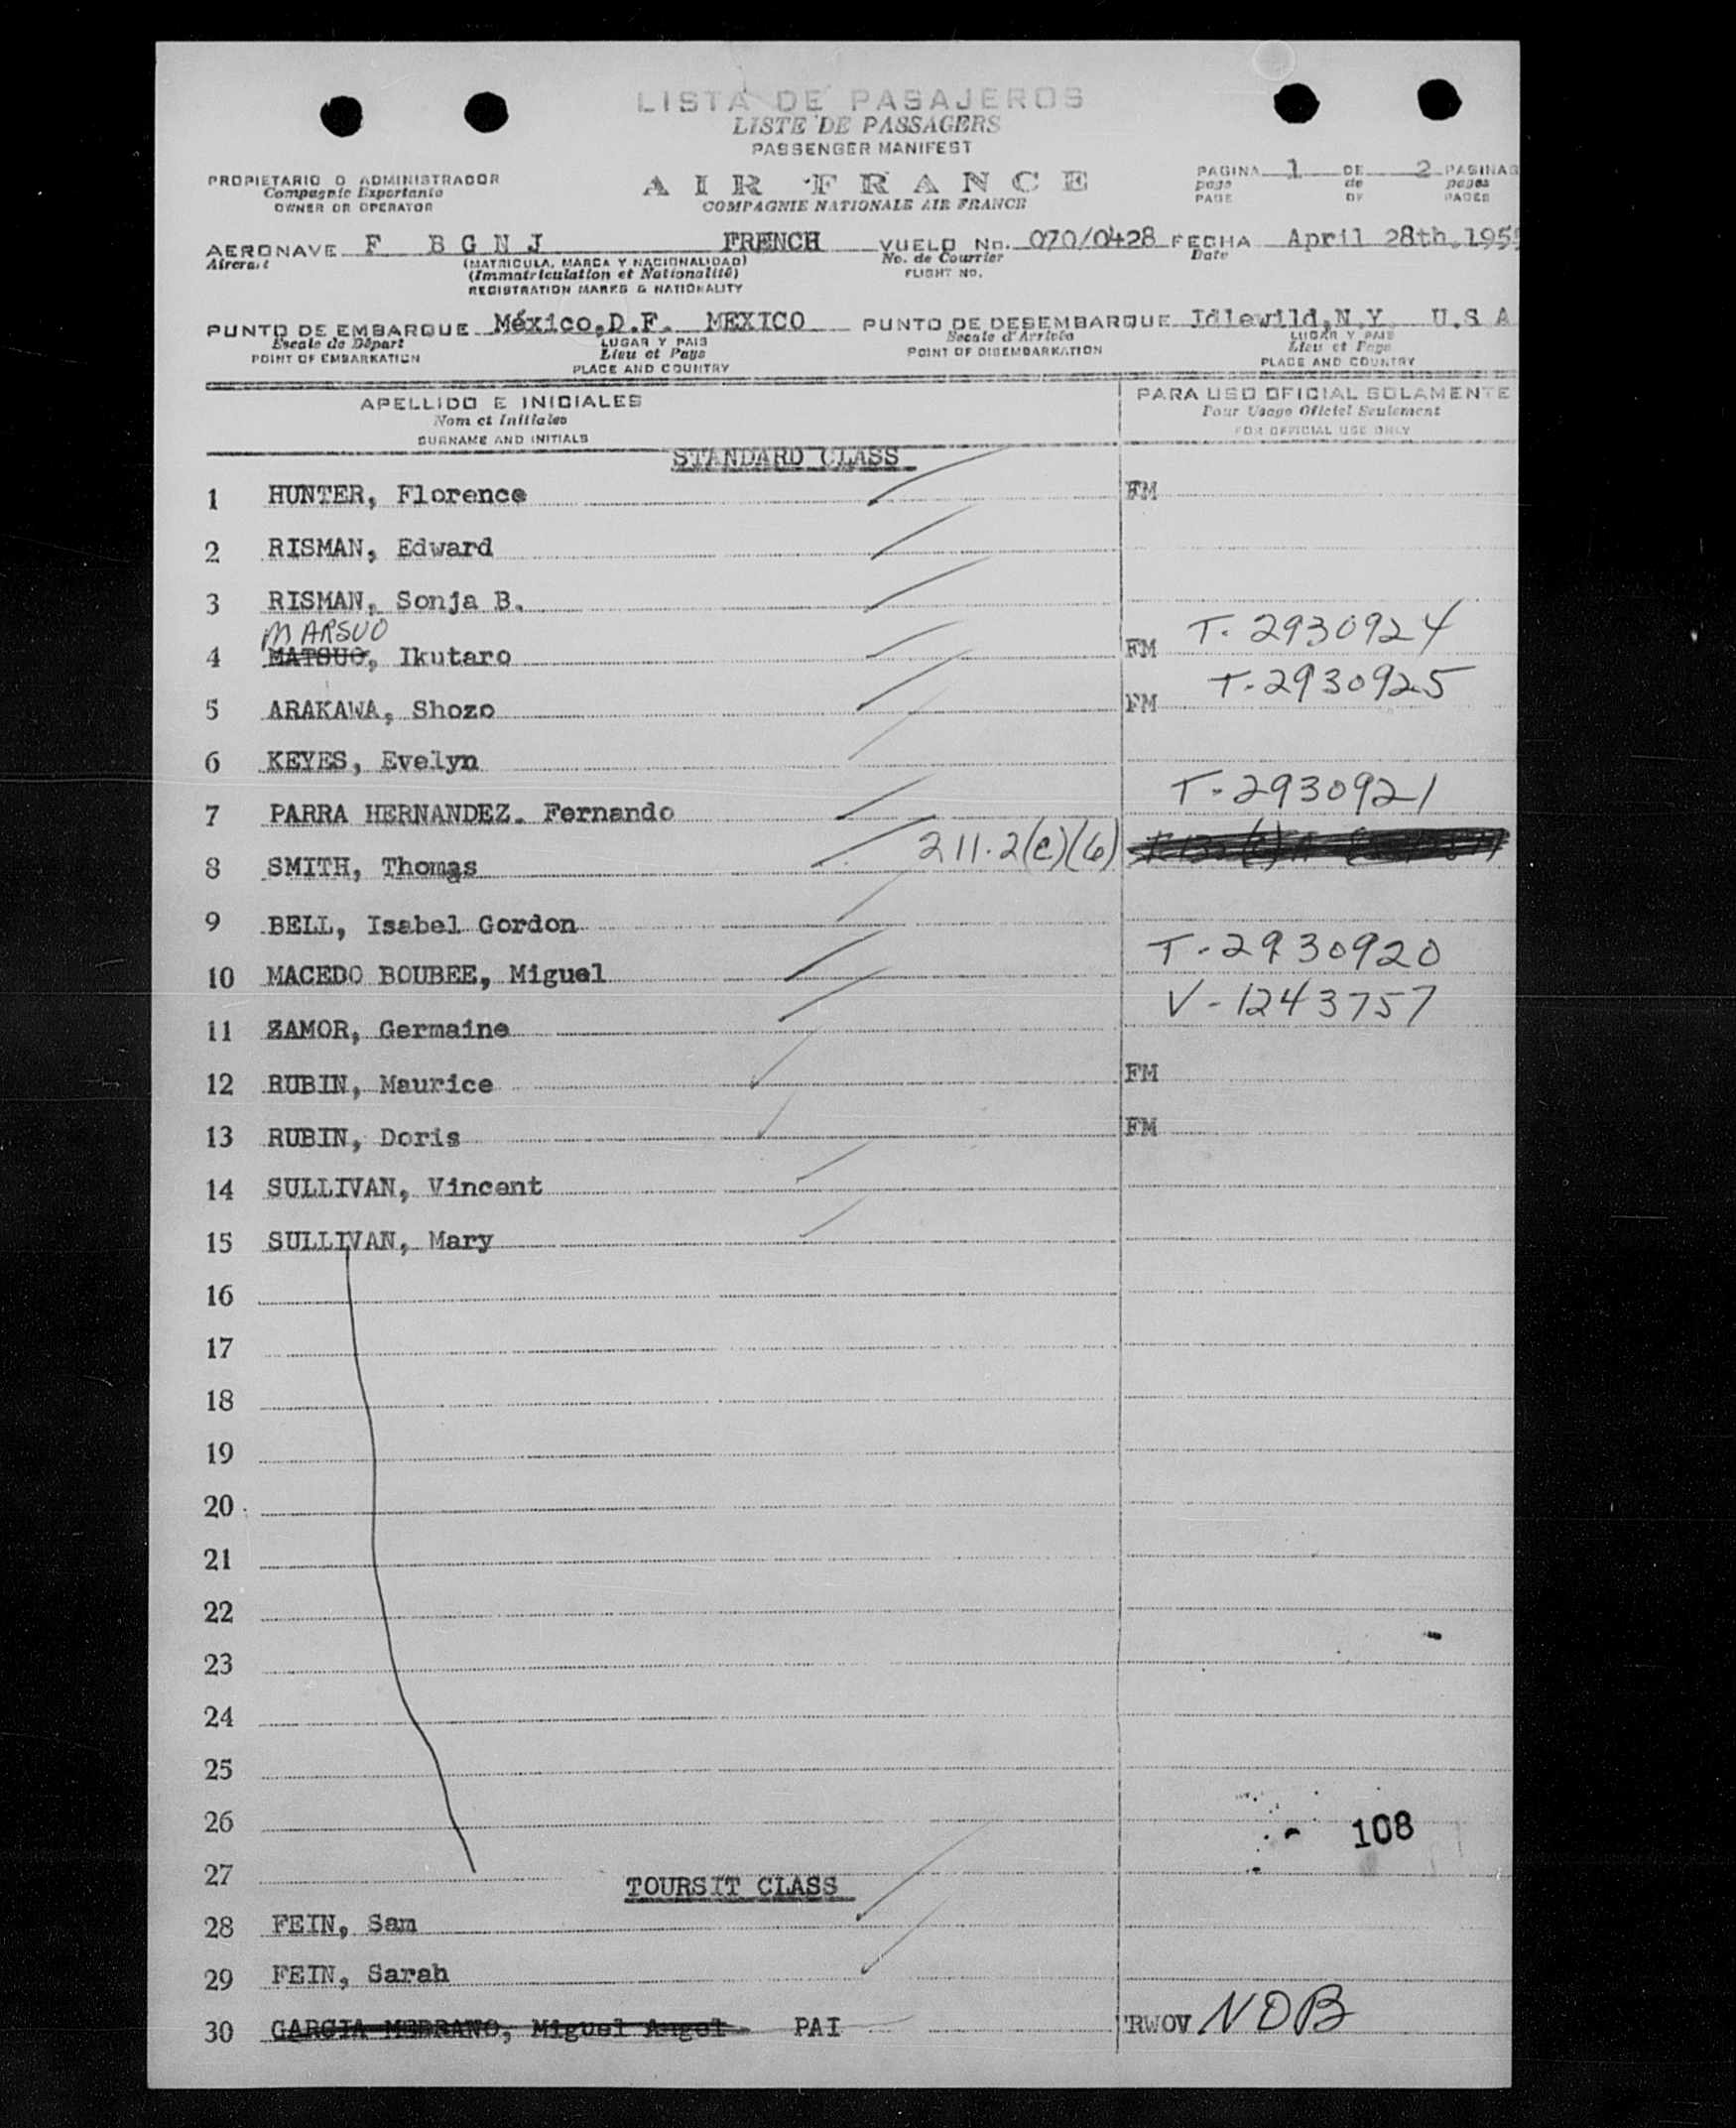 LISTA DE PASAJEROS
LISTE DE PASSAGERS
PASSENGER MANIFEST
PROPIETARIO O ADMINISTRADOR
Compagnie Exportante
OWNER OR OPERATOR
AIR FRANCE
COMPAGNIE NATIONALE AIR FRANCE
PAGINA 1 DE 2 PAGINAS
page de pages
PAGE OF PAGES
AERONAVE F BGNJ FRENCH VUELO No. 070/0428 FECHA April 28th, 195
Aircraft (MATRICULA, MARCA Y NACIONALIDAD) No. de Courrier Date
(Immatriculation et Nationalité) FLIGHT NO.
REGISTRATION MARKS & NATIONALITY
PUNTO DE EMBARQUE México, D.F. MEXICO PUNTO DE DESEMBARQUE Idlewild, N.Y U.S A
Escale de Départ LUGAR Y PAIS Escale d'Arrivée LUGAR Y PAIS
POINT OF EMBARKATION Lieu et Pays POINT OF DISEMBARKATION Lieu et Pays
PLACE AND COUNTRY PLACE AND COUNTRY
APELLIDO E INICIALES PARA USO OFICIAL SOLAMENTE
Nom et Initiales Pour Usage Officiel Seulement
SURNAME AND INITIALS FOR OFFICIAL USE ONLY
STANDARD CLASS
1 HUNTER, Florence FM
2 RISMAN, Edward
3 RISMAN, Sonja B.
MARSUO
4 MATSUO, Ikutaro FM T-2930924
5 ARAKAWA, Shozo FM T-2930925
6 KEYES, Evelyn
7 PARRA HERNANDEZ. Fernando T-2930921
8 SMITH, Thomas 211.2(e)(6)
9 BELL, Isabel Gordon
10 MACEDO BOUBEE, Miguel T-2930920
11 ZAMOR, Germaine V-1243757
12 RUBIN, Maurice FM
13 RUBIN, Doris FM
14 SULLIVAN, Vincent
15 SULLIVAN, Mary
16
17
18
19
20
21
22
23
24
25
26 108
27
TOURSIT CLASS
28 FEIN, Sam
29 FEIN, Sarah
30 GARCIA MERRANO, Miguel Angel PAI TRWOV NOB